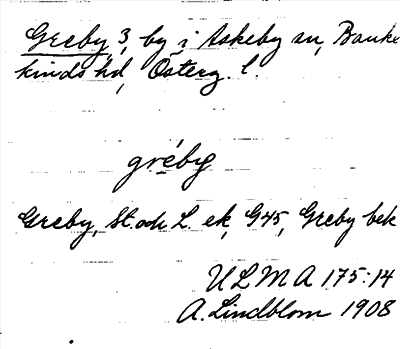 Greby 3, by i Askeby sn, Banke
kinds hd, Österg. l.
gréby
Greby, St. och L. ek, G45, Greby bek
ULMA 175:14
A. Lindblom 1908